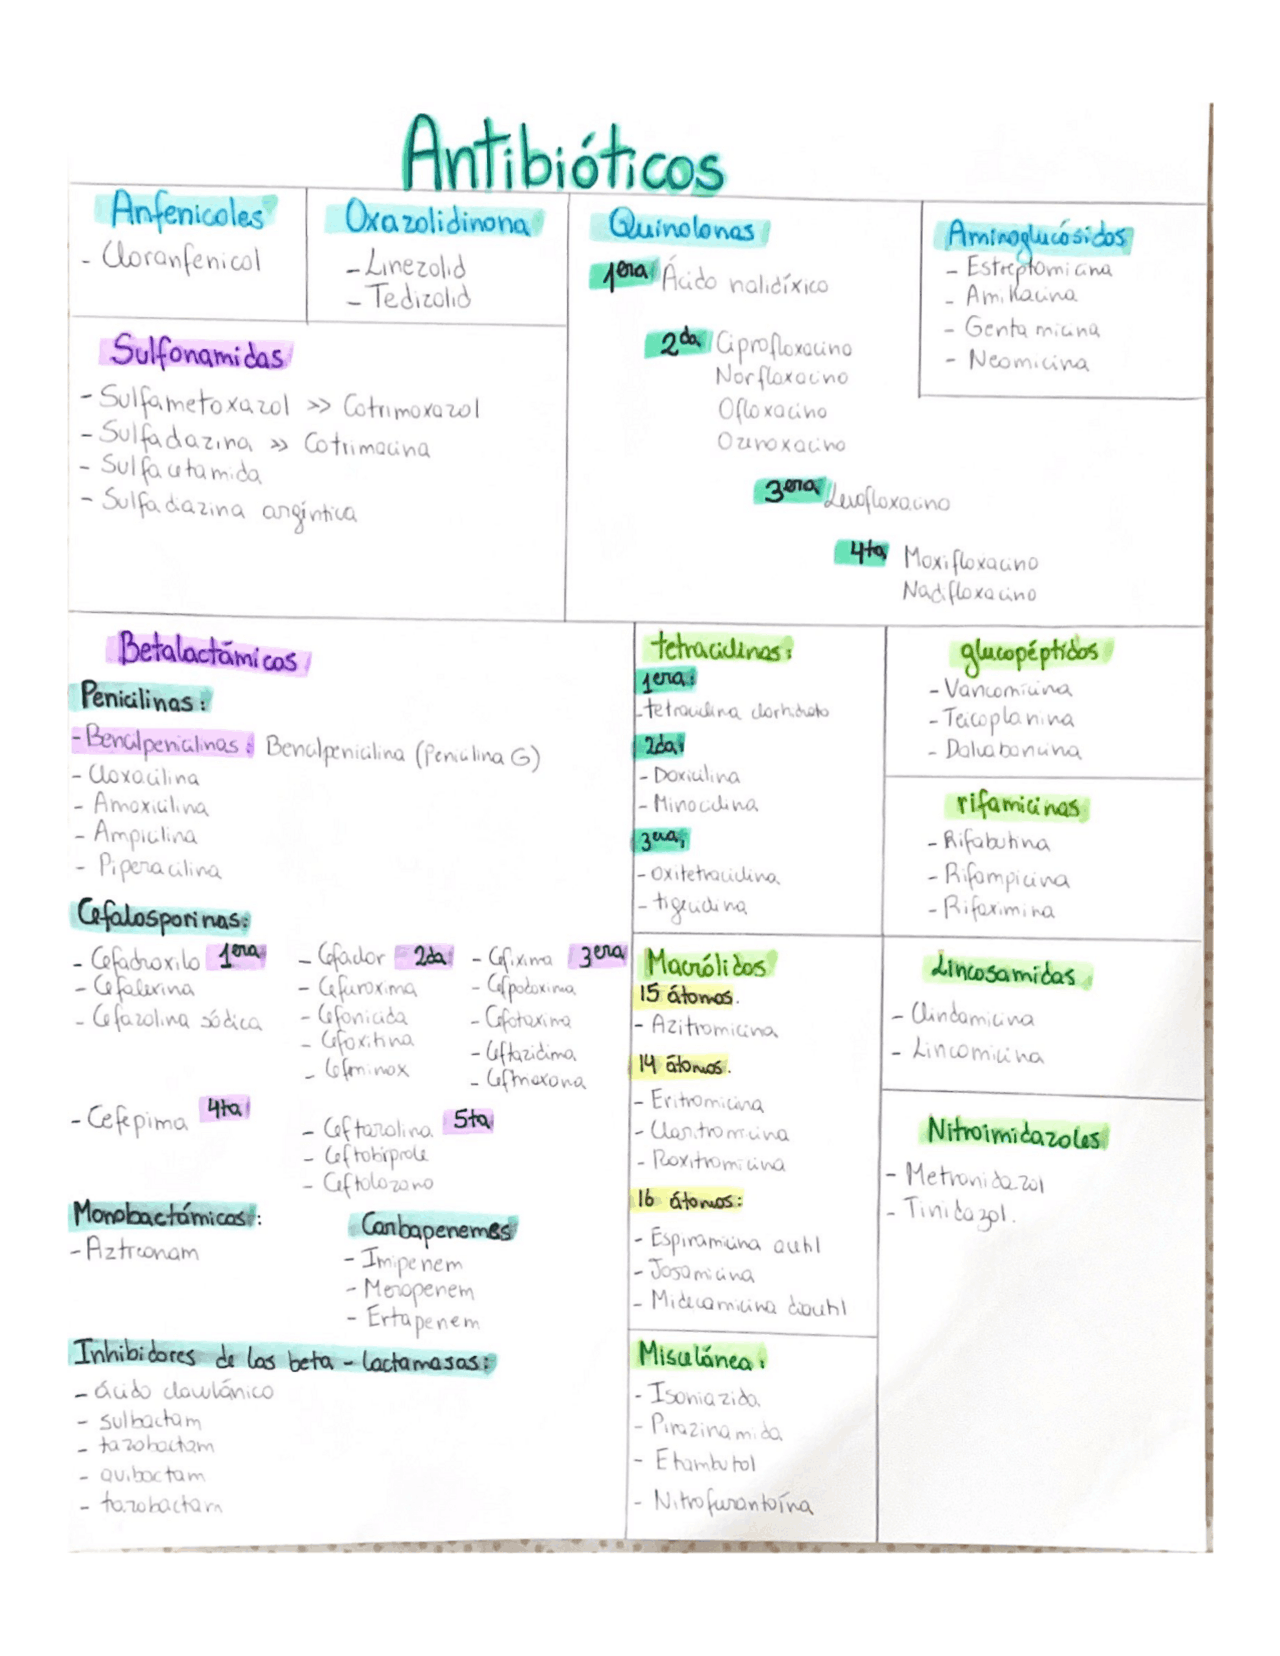 Antibióticos
Anfenicoles
- Cloranfenicol
Oxazolidinona
- Linezolid
- Tedizolid
Quinolonas
1era Ácido nalidíxico
2da Ciprofloxacino
Norfloxacino
Ofloxacino
Ozenoxacino
3era Levofloxacino
4ta Moxifloxacino
Nadifloxacino
Aminoglucósidos
- Estreptomicina
- Amikacina
- Gentamicina
- Neomicina
Sulfonamidas
- Sulfametoxazol >> Cotrimoxazol
- Sulfadazina >> Cotrimacina
- Sulfacetamida
- Sulfadiazina argéntica
Betalactámicos
Penicilinas:
- Bencilpenicilinas: Bencilpenicilina (Penicilina G)
- Cloxacilina
- Amoxicilina
- Ampicilina
- Piperacilina
Cefalosporinas:
- Cefadroxilo 1era
- Cefalexina
- Cefazolina sódica
- Cefaclor 2da
- Cefuroxima
- Cefonicida
- Cefoxitina
- Cefminox
- Cefixima 3era
- Cefpodoxima
- Cefotaxima
- Ceftazidima
- Ceftriaxona
- Cefepima 4ta
- Ceftarolina 5ta
- Ceftobiprole
- Ceftolozano
Monobactámicos:
- Aztreonam
Carbapenemes
- Imipenem
- Meropenem
- Ertapenem
Inhibidores de las beta-lactamasas:
- ácido clavulánico
- sulbactam
- tazobactam
- avibactam
- tazobactam
tetraciclinas:
1era:
- tetraciclina clorhidrato
2da:
- Doxiciclina
- Minociclina
3era:
- Oxitetraciclina
- tigeciclina
Macrólidos
15 átomos.
- Azitromicina
14 átomos.
- Eritromicina
- Claritromicina
- Roxitromicina
16 átomos:
- Espiramicina acetil
- Josamicina
- Midecamicina diacetil
Miscelánea:
- Isoniazida
- Pirazinamida
- Etambutol
- Nitrofurantoína
glucopéptidos
- Vancomicina
- Teicoplanina
- Dalvabancina
rifamicinas
- Rifabutina
- Rifampicina
- Rifaximina
Lincosamidas
- Clindamicina
- Lincomicina
Nitroimidazoles
- Metronidazol
- Tinidazol.